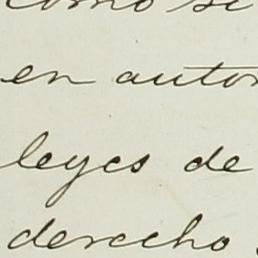 como si
en autor
leyes de
derecho